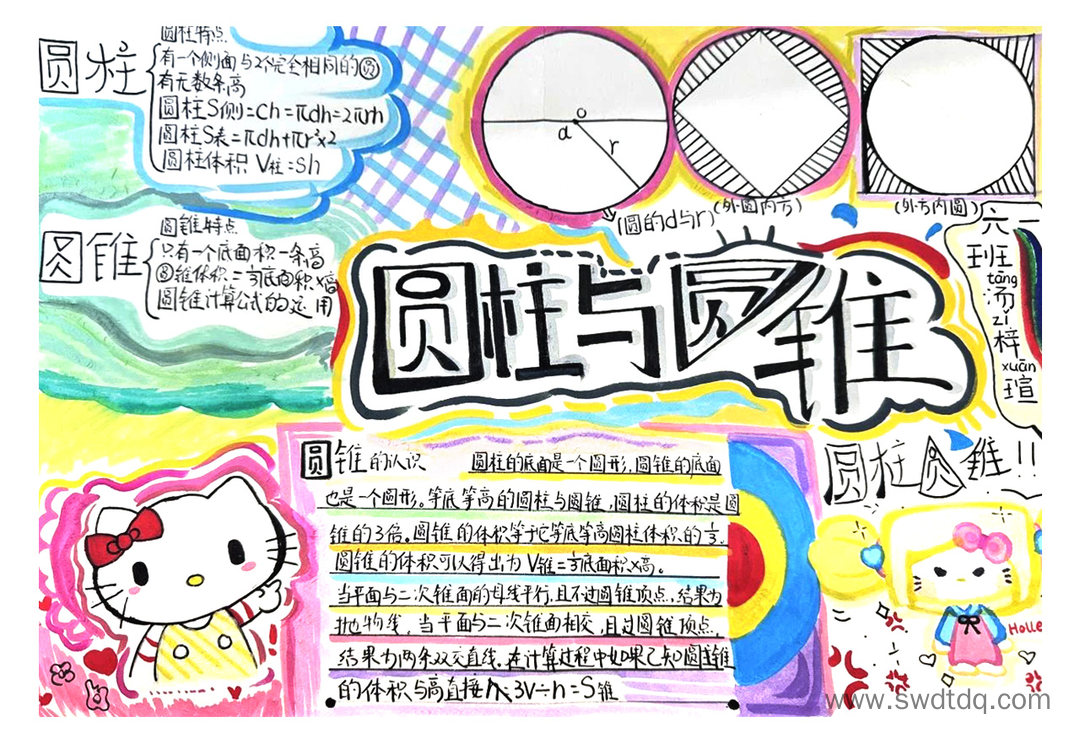 圆柱
圆柱特点
有一个侧面与2个完全相同的圆
有无数条高
圆柱S侧=Ch=πdh=2πrh
圆柱S表=πdh+πr²×2
圆柱体积 V柱=Sh
圆锥
圆锥特点
只有一个底面积一条高
圆锥体积=⅓底面积×高
圆锥计算公式的运用
o
d
r
(圆的d与r)
(外圆内方)
(外方内圆)
六一班
tāng
汤
zǐ
梓
xuān
瑄
圆柱与圆锥
圆锥的认识 圆柱的底面是一个圆形,圆锥的底面
也是一个圆形。等底等高的圆柱与圆锥,圆柱的体积是圆
锥的3倍。圆锥的体积等于它等底等高圆柱体积的⅓.
圆锥的体积可以得出为V锥=⅓底面积×高。
当平面与二次锥面的母线平行,且不过圆锥顶点,结果为
抛物线,当平面与二次锥面相交,且过圆锥顶点,
结果为两条双交直线.在计算过程中如果已知圆锥
的体积与高直接 3V÷h=S锥
圆柱圆锥!!
Holle
www.swdtdq.com